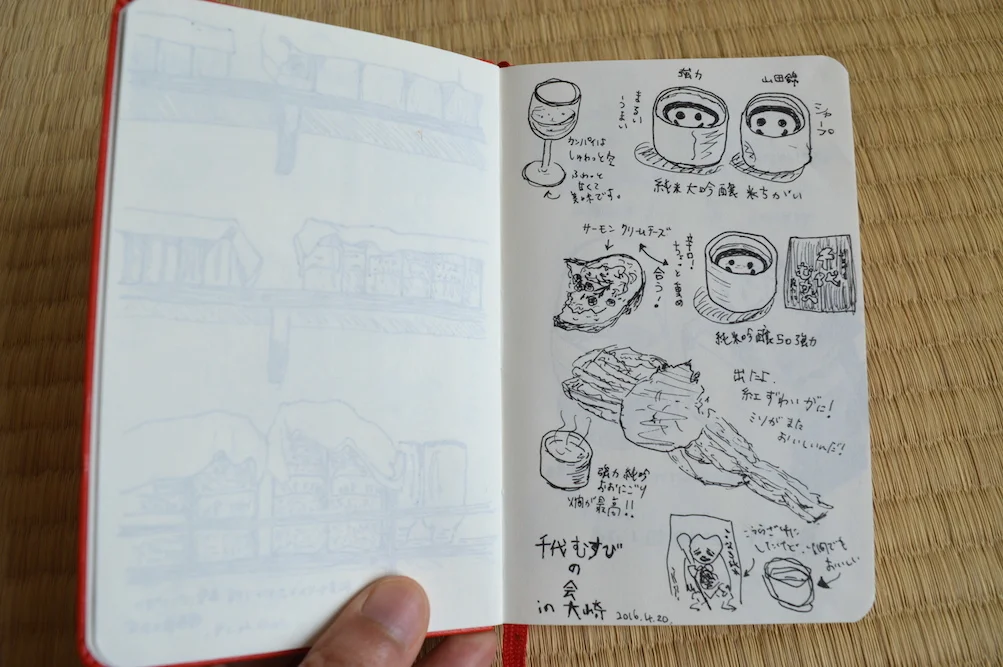 強力
山田錦
まるい
うまい
シャープ
カンパイは
しゅわっと
ふわっと
甘くて
美味です。
純米大吟醸 米ちがい
サーモン クリームチーズ
合う!
辛口!
ちょっと
純米吟醸50強力
出たよ、
紅ずわいがに!
ミソがまた
おいしいんだ!
強力 純吟
おおにごり
燗が最高!!
千代むすび
の
会
in 大崎 2016.4.20.
おいしい